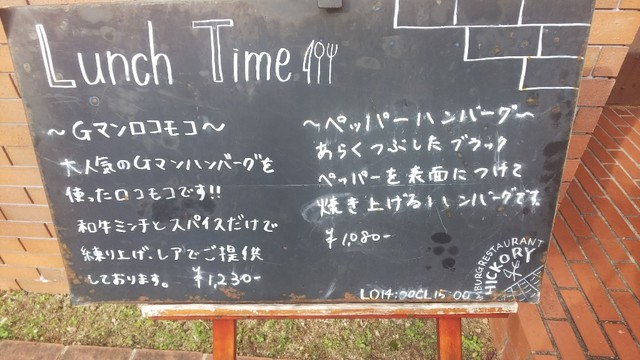 Lunch Time
～Gマンロコモコ～
大人気のGマンハンバーグを
使ったロコモコです!!
和牛ミンチとスパイスだけで
練り上げ、レアでご提供
しております。 ¥1,230-
～ペッパーハンバーグ～
あらくつぶしたブラック
ペッパーを表面につけて
焼き上げるハンバーグです。
¥1,080-
LO14:00CL15:00
RESTAURANT
HICKORY